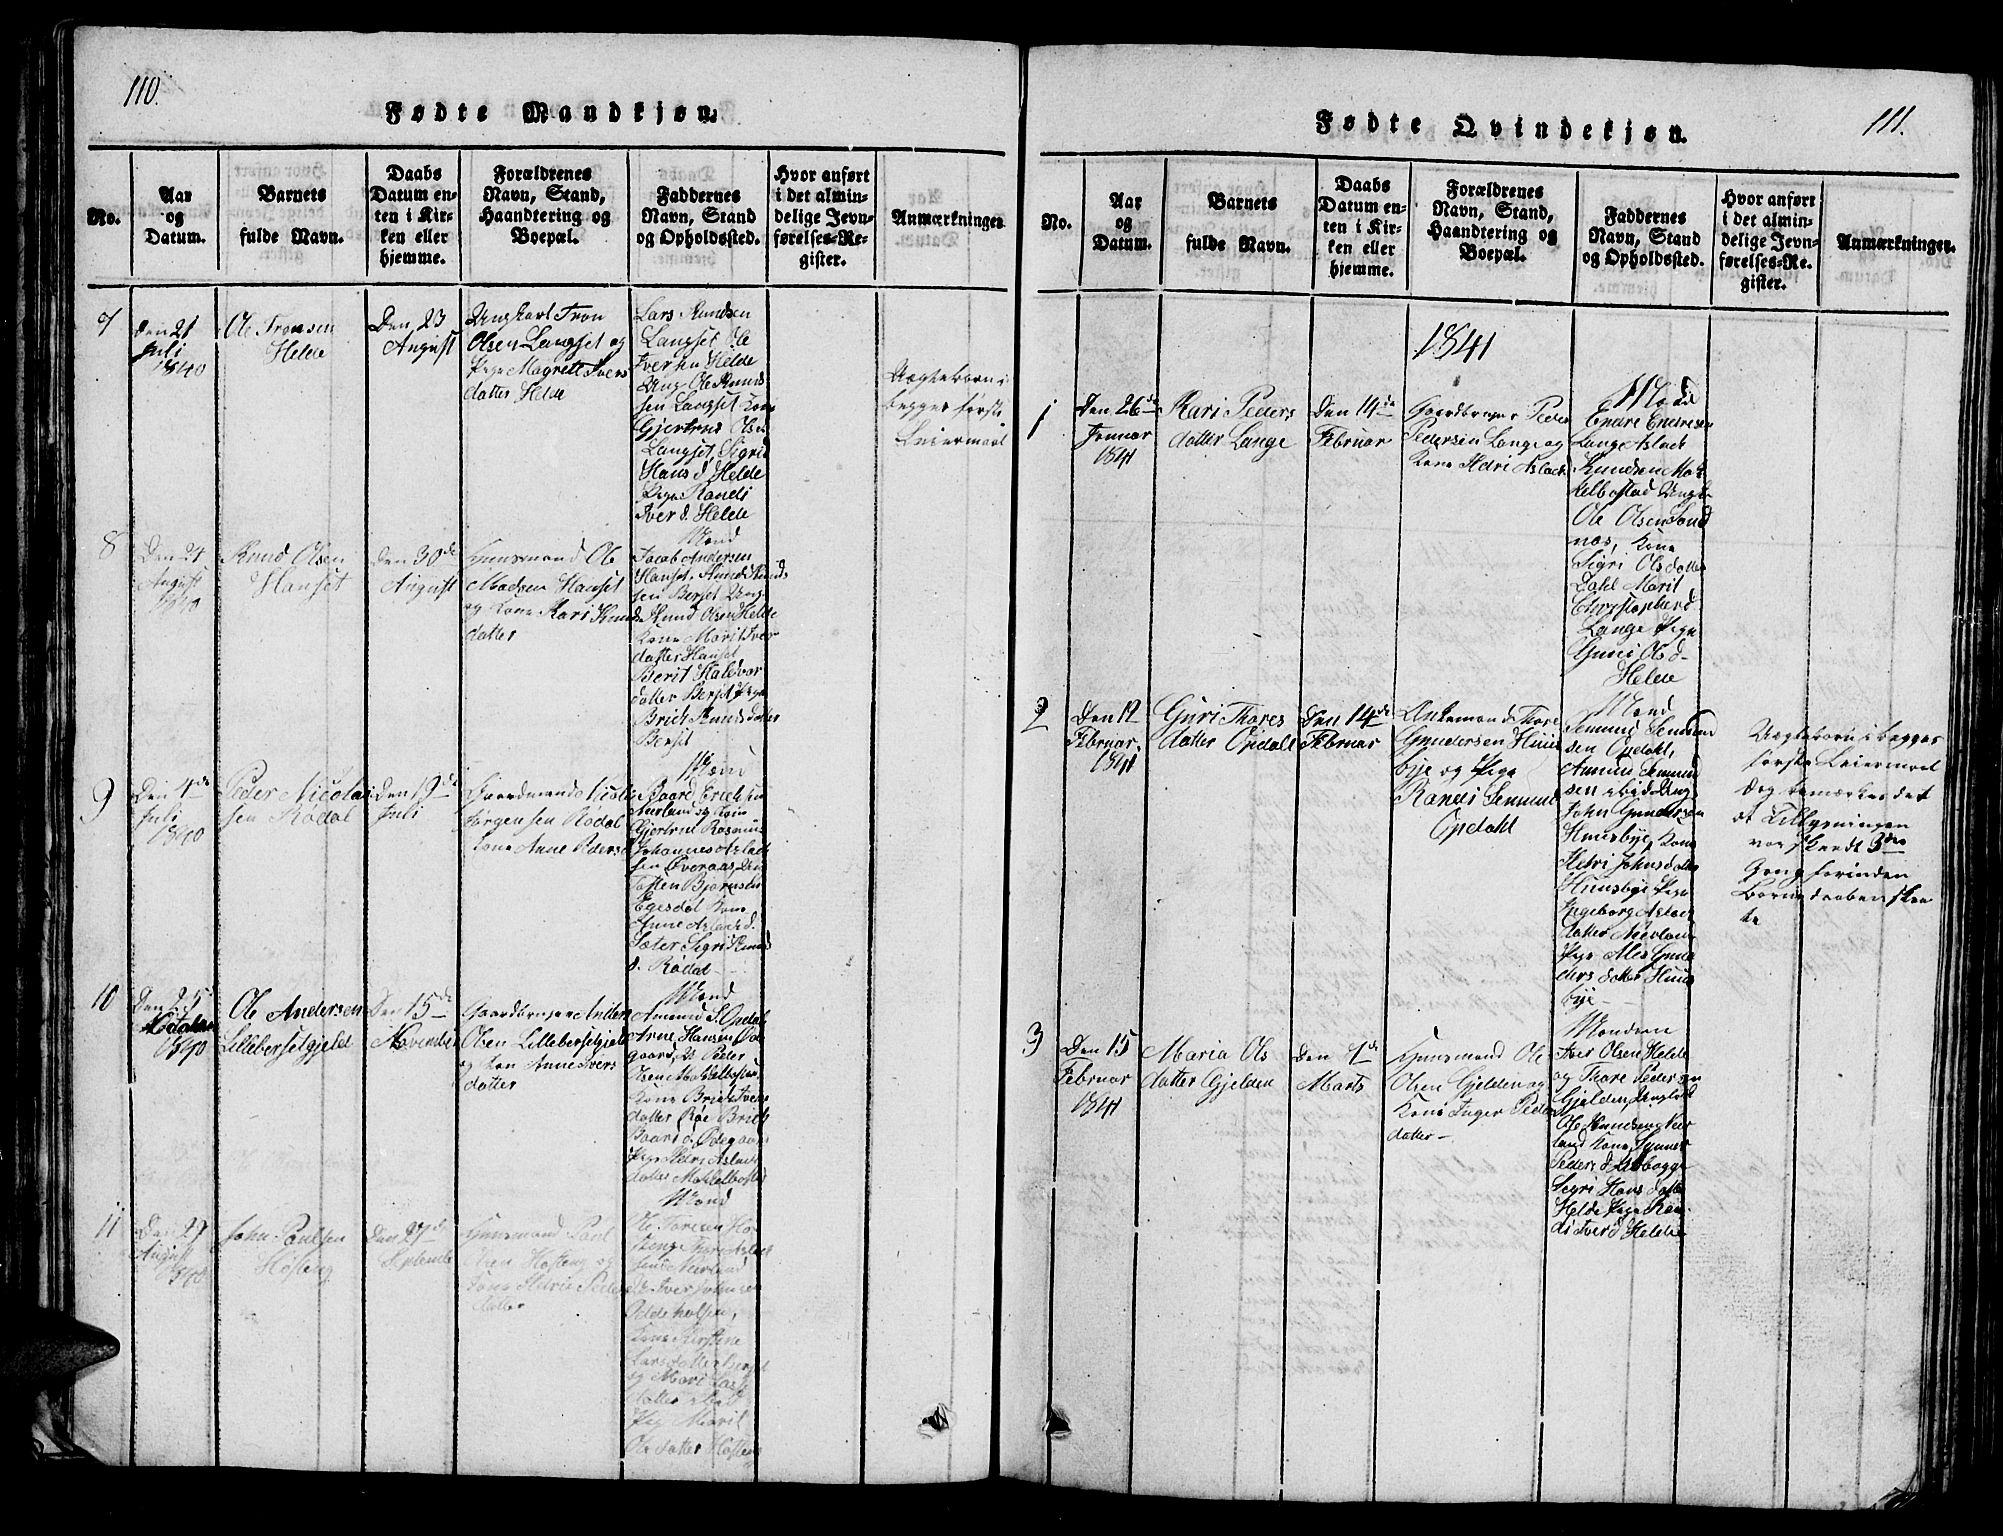 110.
Fødte Mandkjøn.
No.
Aar
og
Datum.
Barnets
fulde Navn.
Daabs
Datum en-
ten i Kir-
ken eller
hjemme.
Forældrenes
Navn, Stand,
Haandtering og
Boepæl.
Faddernes
Navn, Stand
og Opholdssted.
Hvor anført
i det almin-
delige Jevn-
førelses-Re-
gister.
Anmærkninger
7
Den 21
Juli
1840
Ole Tronsen
Helde
Den 23
August
Ungkarl Tron
Olsen Langset og
Pige Magrett Ivers
datter Helde
Lars Knudsen
Langset Ole
Helde
Ung Ole Knud
sen Langset Kone
Gjertrud Ols
Langset, Sigri
Hans d. Helde
Pige Randi
Iver d. Helde
Uægteborn i
begges første
Leiermaal
8
Den 21
August
1840
Knud Olsen
Hanset
Den 30de
August
Huusmand Ole
Madsen Hanset
og Kone Kari Knuds
datter
Mænd
Jacob Andersen
Hanset, Knud Knud
sen Berset Ung
Knud Olsen Helde
Kone Marit Iver
datter Hanset
Berit Halvor
datter Berset Pige
Brict Knuds datter
Berset
9
Den 4de
Juli
1840
Peder Nicolai
sen Rødal
Den 19de
Juli
Gaardmand Nicolai
Jørgensen Rødal
Kone Anne Peders d
Mænd
Baard Erichsen
Gjertrud Rasmus
Johannes Aslach
sen Øveraas
Tosten Bjørnsen
Egesdal Kone
Anne Aslachs d.
Sæter Sigri Knud
d. Rødal
10
Den 25d
1840
Ole Andersen
Lillebersetgjeld
Den 15de
November
Gaardbruger Anders
Olsen Lillebersetgjeld
og Kon Anne Ivers
datter
Mænd
Amund S. Opdal
Arne Hansen Øde
gaard, Peder
Olsen Maklelbostad
Kone Brict Ivers
datter Røe Brict
Baard d. Ødegaard
Pige Hedri Aslach
datter Maklelbostad
11
Den 27
August
1840
John Paulsen
Høsteng
Den 27d
Septembe
Huusmand Paul
Olsen Høsteng og
Kone Hedrie Peders
datter
Mænd
Ole Toresen Hø
steng Thore Aslach
sen Nerland
Iver Johnsen
Kone Kirstine
Larsdatter Berset
og Mari Lars
datter ibid
Pige Marit
Ole datter Høsteng
111.
Fødte Qvindekjøn.
No.
Aar
og
Datum.
Barnets
fulde Navn.
Daabs
Datum en-
ten i Kir-
ken eller
hjemme.
Forældrenes
Navn, Stand,
Haandtering og
Boepæl.
Faddernes
Navn, Stand
og Opholdssted.
Hvor anført
i det almin-
delige Jevn-
førelses-Re-
gister.
Anmærkninger.
1841
1
Den 26de
Januar
1841
Kari Peders
datter Lange
Den 14de
Februar
Gaardbruger Peder
Pedersen Lange og
Kone Hedri Aslach
Mænd
Endre Endresen
Lange Aslach
Knudsen Mak
kelbostad Ungk
Ole Olsen Sand
næs, Kone
Sigri Olsdatter
Dahl Marit
Christopherd
Lange Pige
Guri Ols d
Helde
2
Den 12
Februar
1841
Guri Thores
datter Opdahl
Den 14de
Februar
Enkemand Thore
Gundersen Huus
bye og Pige
Randi Semund
Opdahl
Mænd
Semund Semund
sen Opdahl,
Amund Semund
sen ibid Ung
John Gundersen
Huusbye, Kone
Hedri Johnsdatter
Huusbye Pige
Ingeborg Aslach
datter Nerland
Pige Ales Gun
ders datter Huus
bye
Uægteborn i begges
første Leiermaal
Dog bemærkes det
at Tillysningen
var skeedt 3de
Gang forinden
Barnedaaben skee
de
3
Den 15
Februar
1841
Maria Ols
datter Gjelden
Den 7de
Marts
Huusmand Ole
Olsen Gjelden og
Kone Inger Peders
datter
Mændene
Iver Olsen Helde
og Thore Pedersen
Gjelden, Ungkarl
Ole Knudsen Ner
land Kone Synner
Peders d
Segri Hans datter
Helde Pige Ran
di Iver d Helde